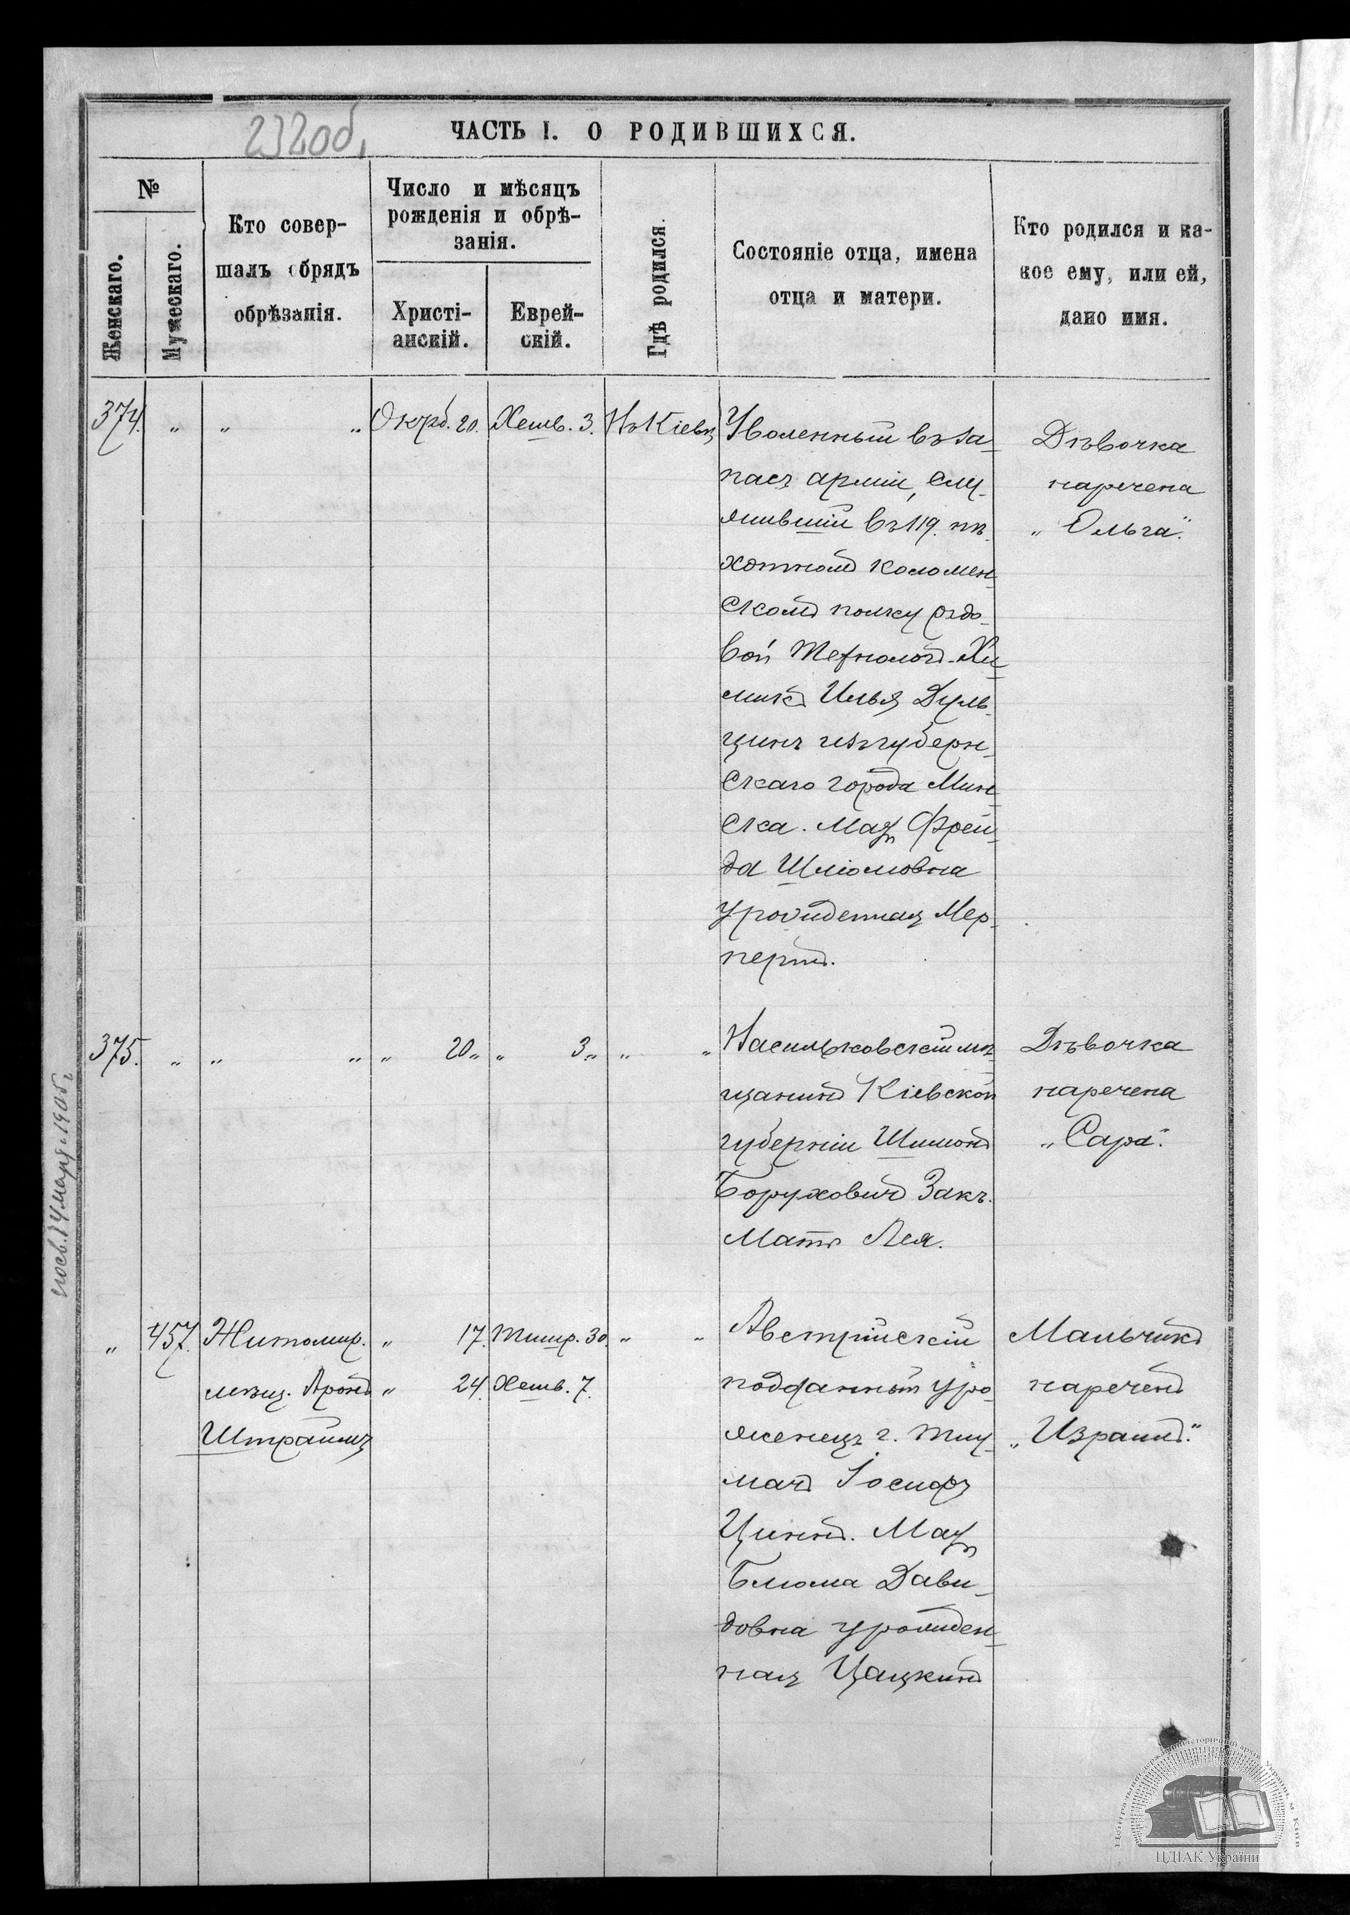 232об,
ЧАСТЬ I. О РОДИВШИХСЯ.
№
Женскаго.
Мужескаго.
Кто совер-
шалъ обрядъ
обрѣзанія.
Число и мѣсяцъ
рожденія и обрѣ-
занія.
Христі-
анскій.
Еврей-
скій.
Гдѣ родился.
Состояніе отца, имена
отца и матери.
Кто родился и ка-
кое ему, или ей,
дано имя.
374. „ „ „ Октб. 20. Хешв. 3. Въ Кіевѣ
Уволенный въ за-
пасъ арміи, слу-
жившій въ 119. пѣ-
хотномъ Коломен-
скомъ полку рядо-
вой Технологъ-Хи-
микъ Илья Дуль-
цинъ изъ губерн-
скаго города Мин-
ска. Мать Фрей-
да Шліомовна
урожденная Мер-
пертъ.
Дѣвочка
наречена
„Ольга."
375. „ „ „ „ 20„ „ 3„ „ „
Васильковскій мѣ-
щанинъ Кіевской
губерніи Шимонъ
Боруховичъ Закъ.
Мать Лея.
Дѣвочка
наречена
„Сара".
„ 457. Житомир.
мѣщ. Аронъ
Штраимъ
„ 17. Тишр. 30. „ „
„ 24. Хешв. 7.
Австрійскій
подданный уро-
женецъ г. Тлу-
мачъ Іосифъ
Циннъ. Мать
Блюма Дави-
довна урожден-
ная Цацкинъ
Мальчикъ
нареченъ
„Израиль."
ЦДІАК України